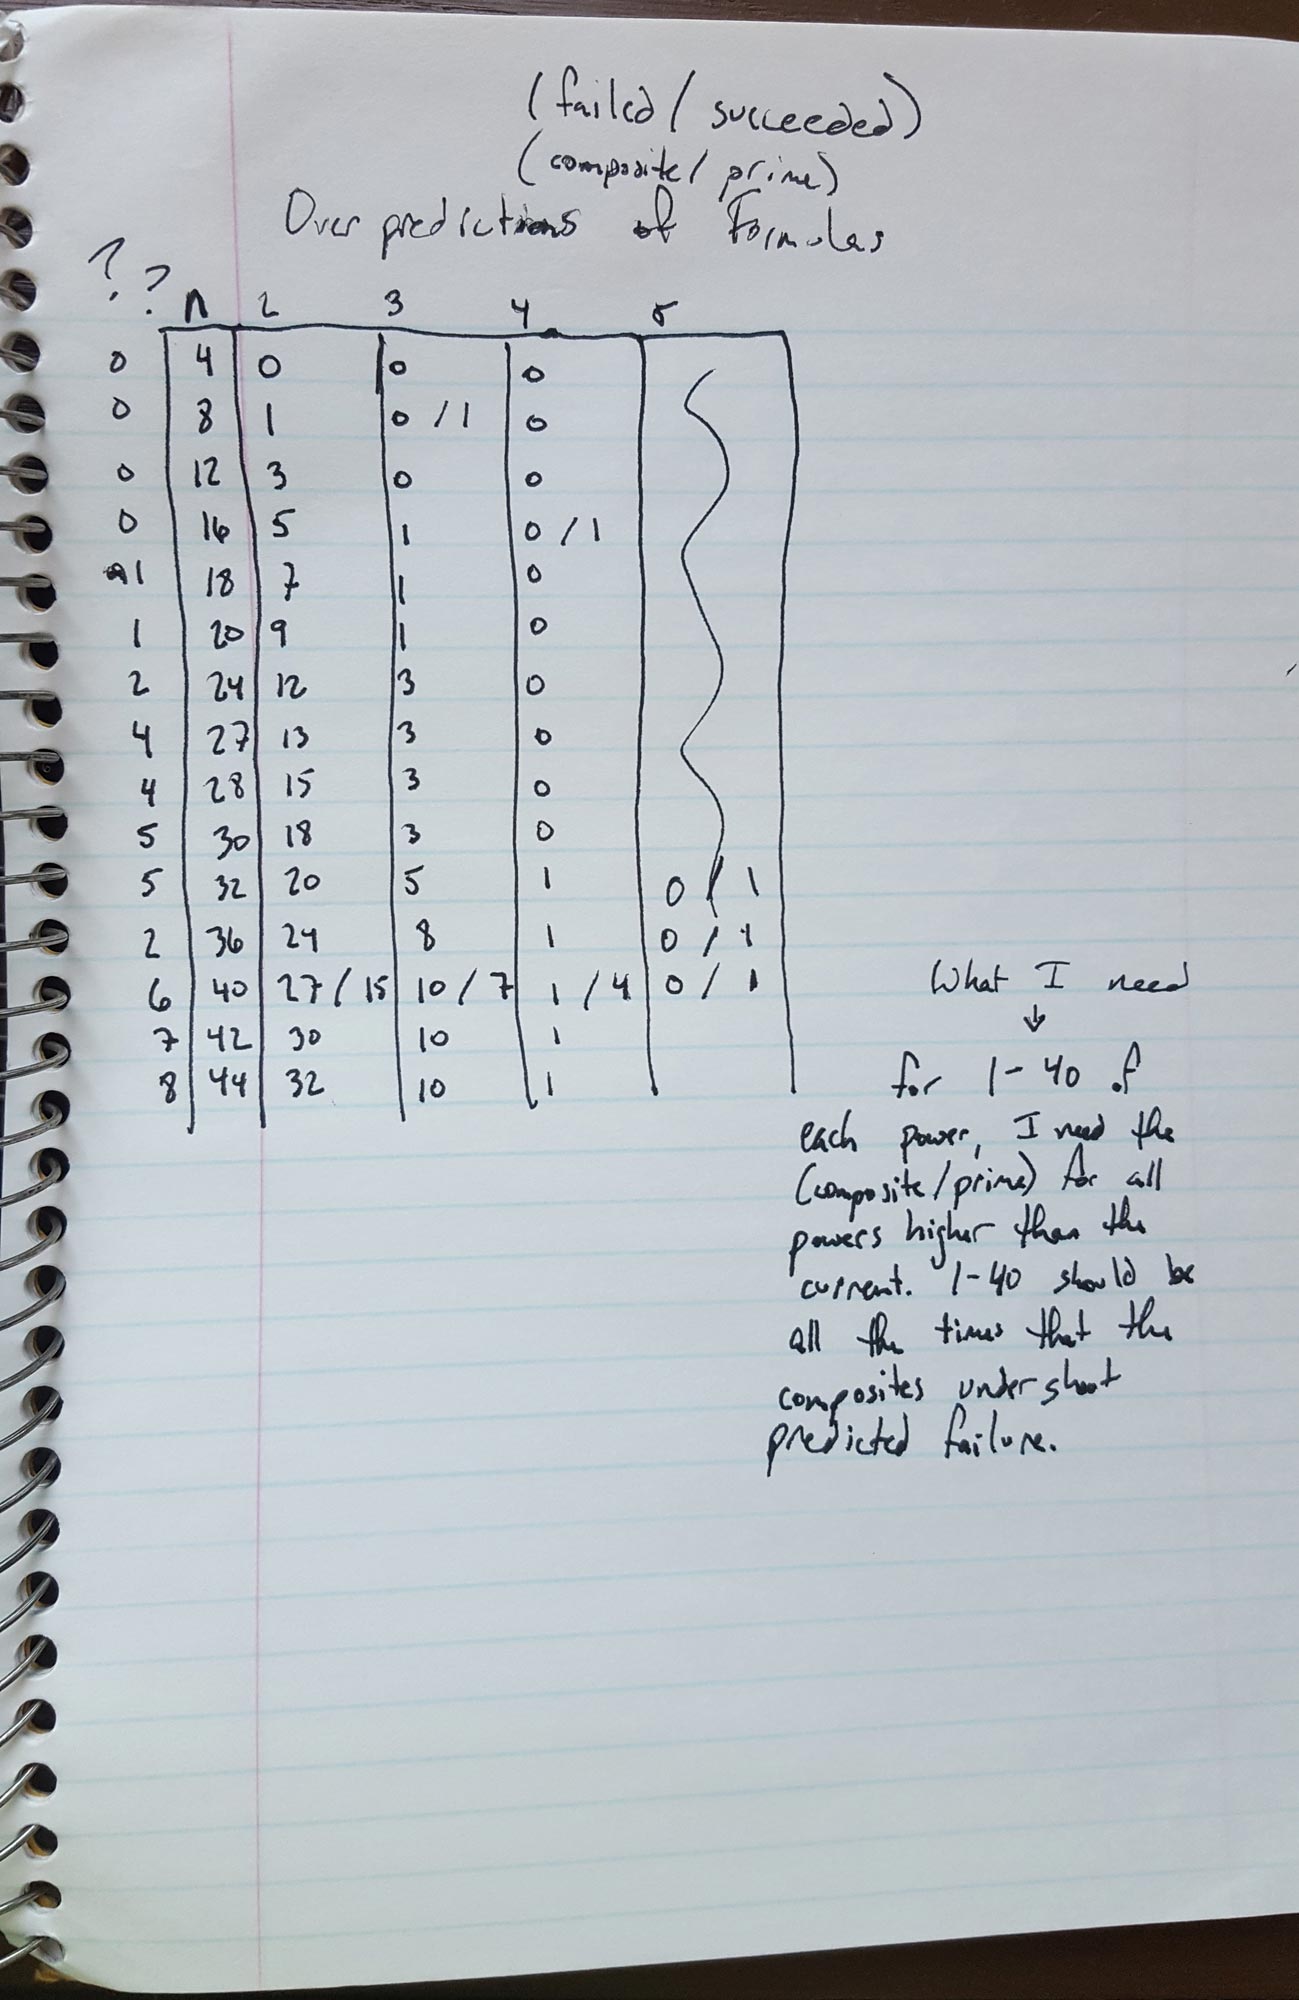 (failed / succeeded)
(composite / prime)
Over predictions of Formulas
? ? n 2 3 4 5
0 4 0 0 0
0 8 1 0 / 1 0
0 12 3 0 0
0 16 5 1 0 / 1
1 18 7 1 0
1 20 9 1 0
2 24 12 3 0
4 27 13 3 0
4 28 15 3 0
5 30 18 3 0
5 32 20 5 1 0 / 1
2 36 24 8 1 0 / 1
6 40 27 / 15 10 / 7 1 / 4 0 / 1
7 42 30 10 1
8 44 32 10 1
What I need
↓
for 1-40 of
each power, I need the
(composite/prime) for all
powers higher than the
current. 1-40 should be
all the times that the
composites undershoot
predicted failure.